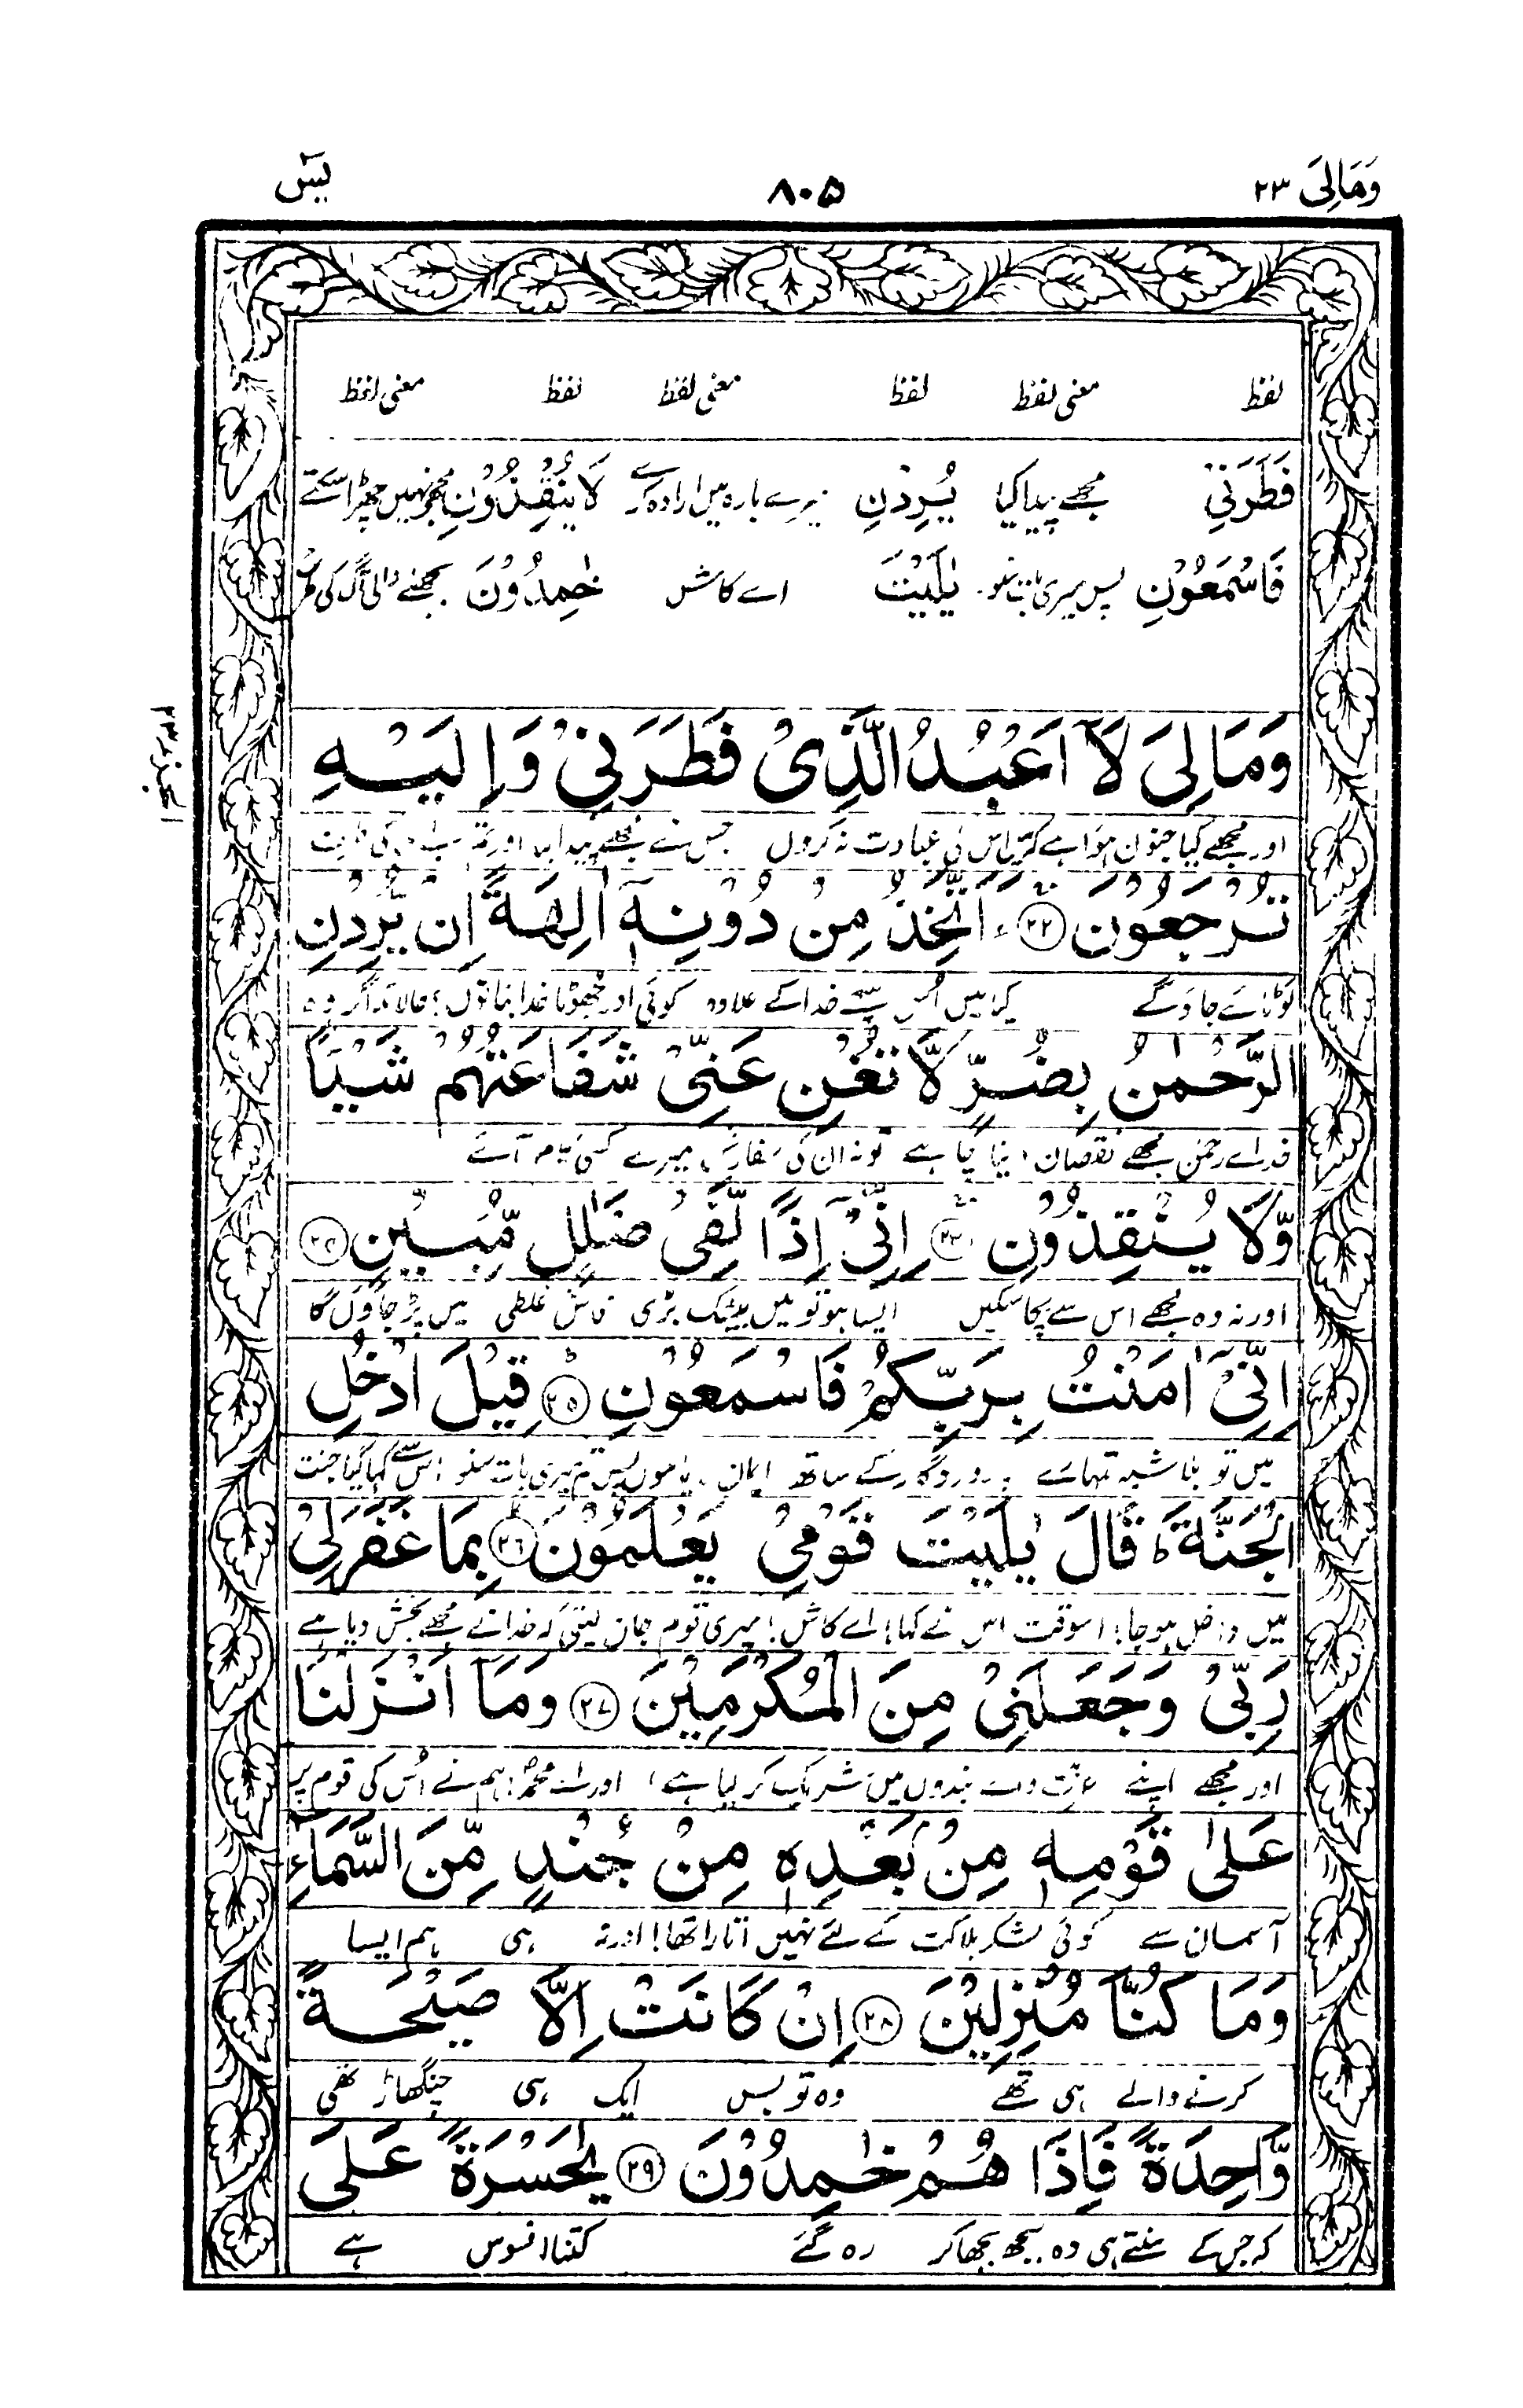 وَمَالِیَ ۲۳ ۸۰۵ یٰسٓ
لفظ معنی لفظ لفظ معنی لفظ لفظ معنی لفظ
فَطَرَنِیْ مجھے پیدا کیا یُرِدْنِ میرے بارہ میں ارادہ کرے لَا یُنْقِذُوْنِ مجھ نہیں چھڑا سکتے
فَاسْمَعُوْنِ پس میری بات سنو۔ یٰلَیْتَ اے کاش خٰمِدُوْنَ بجھنے والی آگ کی طرح
الجزء ۲۳
وَمَا لِیَ لَاۤ اَعْبُدُ الَّذِیْ فَطَرَنِیْ وَ اِلَیْهِ
اور مجھے کیا جنون ہوا ہے کہ میں اس کی عبادت نہ کروں جس نے مجھے پیدا کیا اور تم سب اسی کی طرف
تُرْجَعُوْنَ ﴿۲۲﴾ ءَاَتَّخِذُ مِنْ دُوْنِهٖۤ اٰلِهَةً اِنْ یُّرِدْنِ
لوٹائے جاؤ گے کیا میں اُس سچے خدا کے علاوہ کوئی اور جھوٹا خدا بنا لوں؛ حالانکہ اگر وہ
الرَّحْمٰنُ بِضُرٍّ لَّا تُغْنِ عَنِّیْ شَفَاعَتُهُمْ شَیْـًٔا
خدائے رحمٰن مجھے نقصان دینا چاہے تو نہ ان کی سفارش میرے کسی کام آئے
وَّ لَا یُنْقِذُوْنِ ﴿۲۳﴾ اِنِّیْۤ اِذًا لَّفِیْ ضَلٰلٍ مُّبِیْنٍ ﴿۲۴﴾
اور نہ وہ مجھے اس سے بچا سکیں ایسا ہو تو میں بیشک بڑی فاش غلطی میں پڑ جاؤں گا
اِنِّیْۤ اٰمَنْتُ بِرَبِّكُمْ فَاسْمَعُوْنِ ﴿۲۵﴾ قِیْلَ ادْخُلِ
میں تو بلا شبہ تمہارے پروردگار کے ساتھ ایمان لایا ہوں پس تم میری بات سنو اس سے کہا گیا جنت
الْجَنَّةَ ؕ قَالَ یٰلَیْتَ قَوْمِیْ یَعْلَمُوْنَ ﴿۲۶﴾ بِمَا غَفَرَ لِیْ
میں داخل ہو جا؛ اسوقت اس نے کہا؛ اے کاش؛ میری قوم جان لیتی کہ خدا نے مجھے بخش دیا ہے
رَبِّیْ وَ جَعَلَنِیْ مِنَ الْمُكْرَمِیْنَ ﴿۲۷﴾ وَ مَاۤ اَنْزَلْنَا
اور مجھے اپنے عزت والے بندوں میں شریک کر لیا ہے؛ اور اے محمدؐ؛ ہم نے اُس کی قوم پر
عَلٰی قَوْمِهٖ مِنْۢ بَعْدِهٖ مِنْ جُنْدٍ مِّنَ السَّمَآءِ
آسمان سے کوئی لشکر ہلاکت کے لئے نہیں اتارا تھا! اور نہ ہی ہم ایسا
وَ مَا كُنَّا مُنْزِلِیْنَ ﴿۲۸﴾ اِنْ كَانَتْ اِلَّا صَیْحَةً
کرنے والے ہی تھے وہ تو بس ایک ہی چنگھاڑ تھی
وَّاحِدَةً فَاِذَا هُمْ خٰمِدُوْنَ ﴿۲۹﴾ یٰحَسْرَةً عَلَی
کہ جس کے سنتے ہی وہ بجھ بجھا کر رہ گئے کتنا افسوس ہے